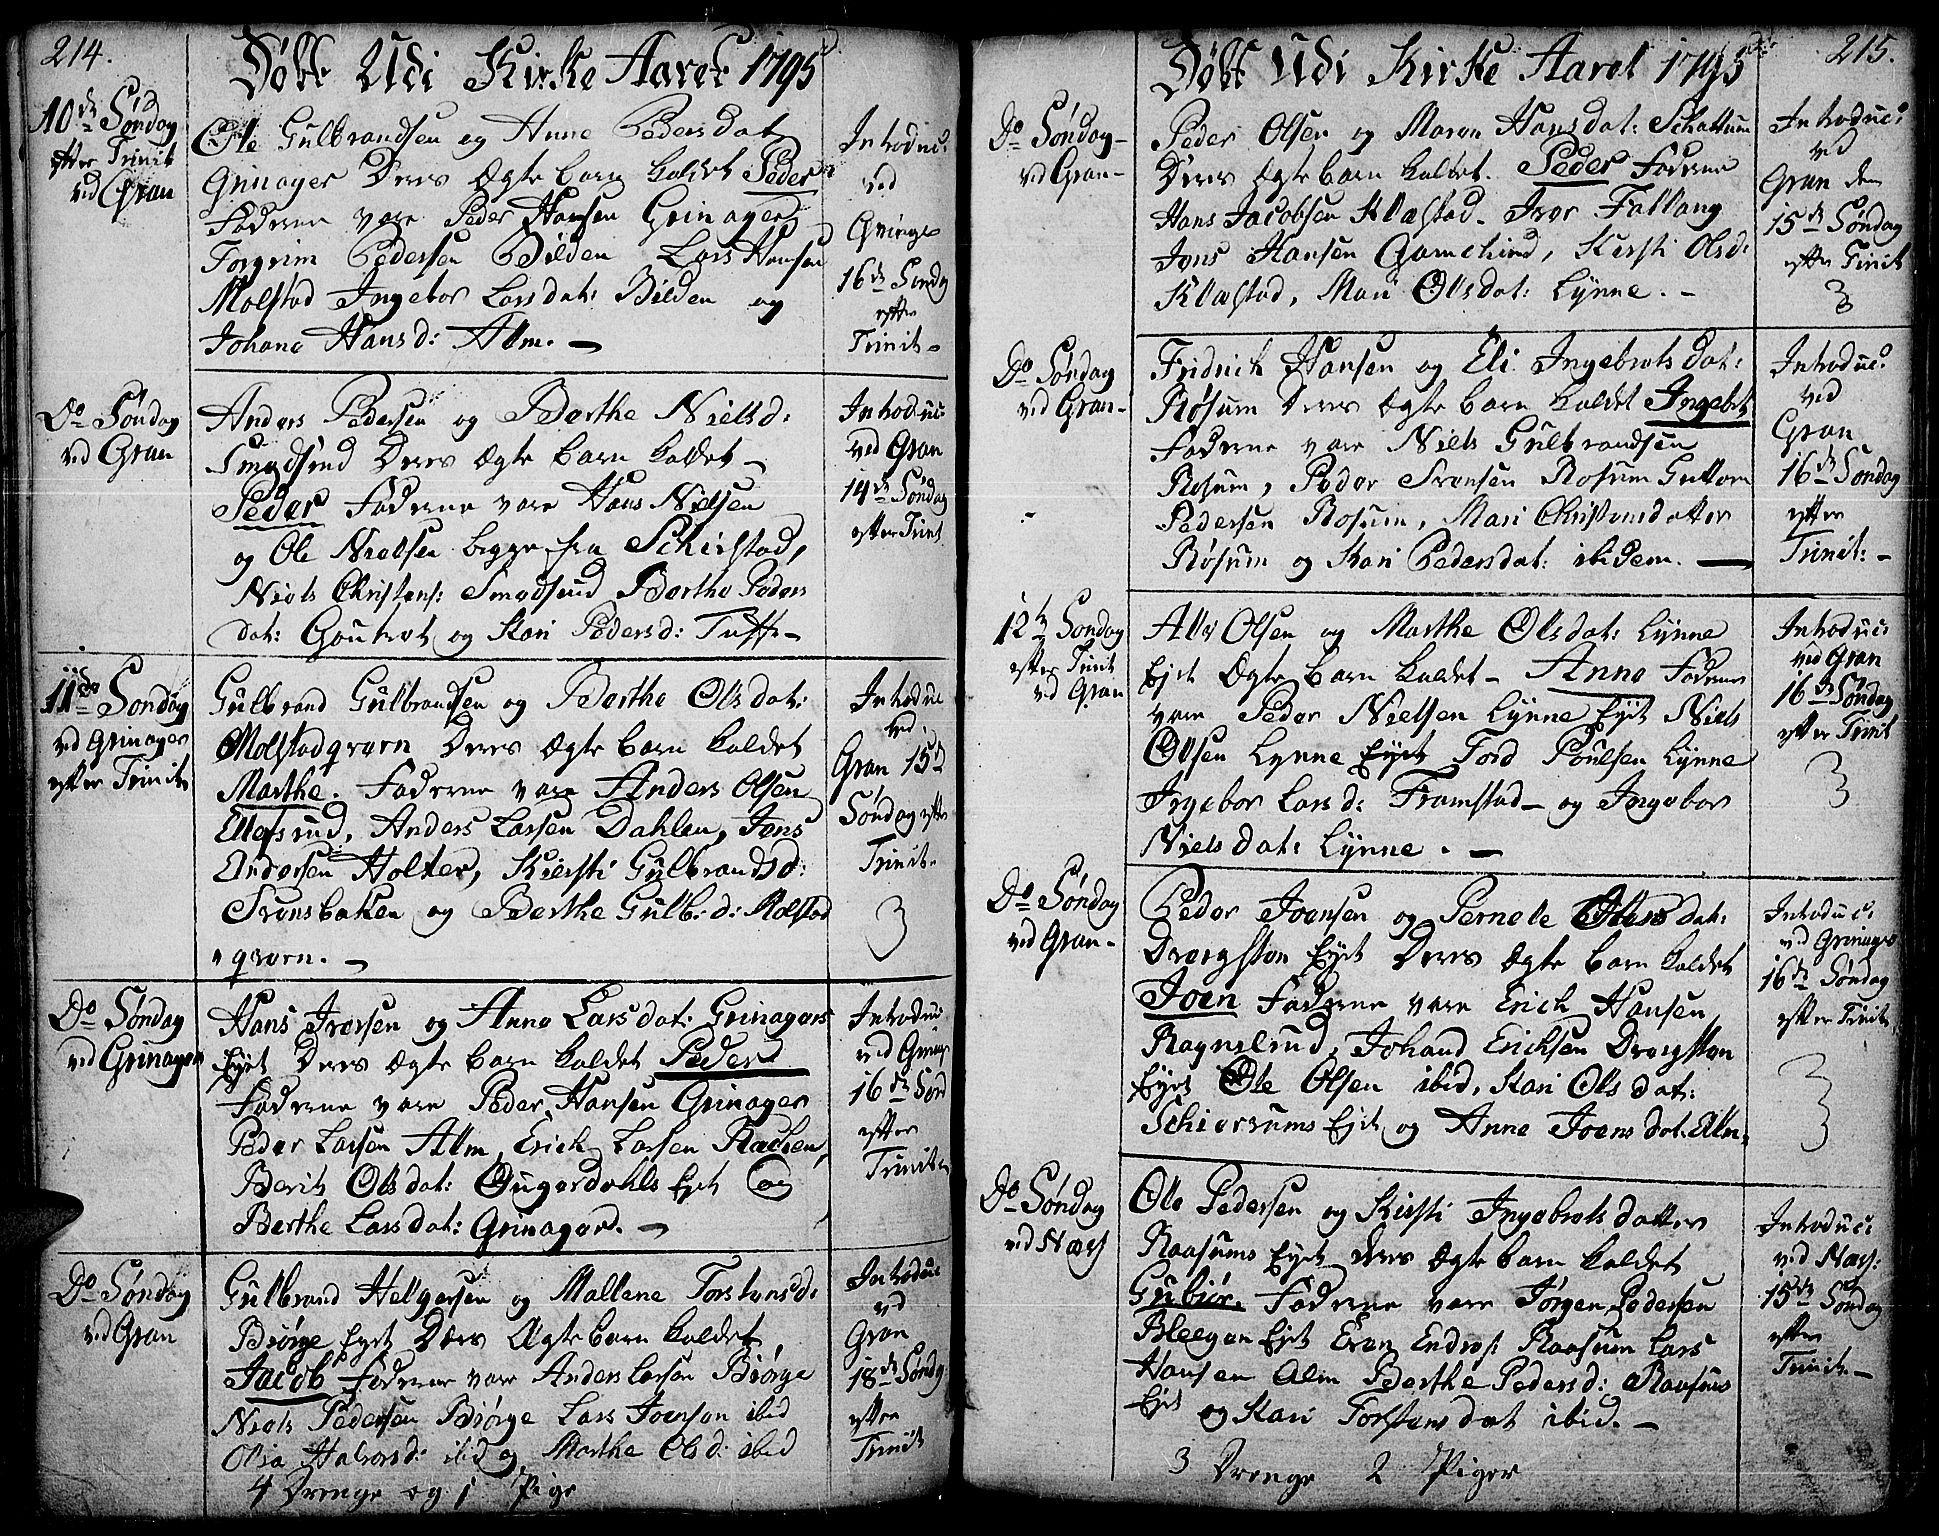 214.
Døbt Udi Kirke Aaret 1795
10de Søndag
efter Trinit
ved Gran
Ole Gulbrandsen og Anne Pedersdat
Grinager Deres Ægte barn kaldet Peder
Fadderne vare Peder Hansen Grinager
Torgrim Pedersen Bilden Lars Hansen
Molstad Ingebor Larsdat: Bilden og
Johane Hansd: Alm. —
Introduc:
ved
Grinager
16de Søndag
efter
Trinit
Do Søndag
ved Gran
Anders Pedersen og Berthe Nielsd:
Smedsrud Deres Ægte barn kaldet
Peder Fadderne vare Hans Nielsen
og Ole Nielsen begge fra Schiestad,
Niels Christens: Smedsrud Berthe Peders
dat: og Kari Pedersd: Tuff
Introduc:
ved Gran
14de Søndag
efter Trinit
11te Søndag
ved Grinager
efter Trinit
Gulbrand Gulbrandsen og Berthe Olsdat:
Molstadqvern Deres Ægte barn kaldet
Marthe. Fadderne vare Anders Olsen
Ellefsrud, Anders Larsen Dahlen, Jens
Andersen Holter, Kiersti Gulbrandsd:
Svensbaken og Berthe Gulb:d: Molstad
qvern. —
Introduc
ved
Gran 15de
Søndag efter
Trinit
3
Do Søndag
ved Grinager
Hans Iversen og Anne Larsdat: Grinagers
Eyet Deres Ægte barn kaldet Peder
Fadderne vare Peder Hansen Grinager
Peder Larsen Alm, Erich Larsen Rachen,
Berit Olsdat: Eyet og
Berthe Larsdat: Grinager. —
Introduc
ved Grinag
16de Sønd
efter
Trinit
Do Søndag
ved Gran
Gulbrand Helgesen og Mallene Torstensd:
Biørge Eyet Deres Ægte barn kaldet
Jacob Fadderne vare Anders Larsen Biørge
Niels Pedersen Biørge Lars Joensen ibid
Olia Halvorsd: ibid og Marthe Olsd: ibid
Introduc
ved
Gran
18de Søndag
efter
Trinit
4 Drenge og 1 Pige
215.
Døbt Udi Kirke Aaret 1795
Do Søndag
ved Gran
Peder Olsen og Maren Hansdat: Schattum
Deres Ægte barn kaldet. Peder Fadderne
Hans Jacobsen Klæstad. Iver Fallang
Jens Hansen Kiersti Olsd:
Klæstad, Mari Olsdat: Lynne. —
Introduc:
ved
Gran den
15de Søndag
efter Trinit
3
Do Søndag
ved Gran
Fridrich Hansen og Eli Ingebretsdat:
Røsum Deres Ægte barn kaldet Ingebret
Fadderne vare Niels Gulbrandsen
Røsum, Peder Svensen Røsum Guttorm
Pedersen Røsum, Mari Christensdatter
Røsum og Kari Pedersdat: ibidem. —
Introduc:
ved
Gran
16de Søndag
efter
Trinit: —
12te Søndag
efter Trinit
ved Gran
Alv Olsen og Marthe Olsdat: Lynne
Eyet Ægte barn kaldet — Anne Fadderne
vare Peder Nielsen Lynne Eyet Niels
Olsen Lynne Eyet Tord Poulsen Lynne
Ingebor Larsd: Framstad — og Ingebor
Nielsdat: Lynne. —
Introduc:
ved Gran
16de Søndag
efter Trinit
3
Do Søndag
ved Gran
Peder Joensen og Pernele Olsdat:
Dvergsten Eyet Deres Ægte barn kaldet
Joen Fadderne vare Erich Hansen
Ragnelrud, Johand Erichsen Dvergsten
Eyet Ole Olsen ibid, Kari Olsdat:
Schiervums Eyet og Anne Joensdat: Alm
Introduc:
ved Grinager
16de Søndag
efter Trinit
3
Do Søndag
ved Næss
Ole Pedersen og Kiersti Ingebretsdatter
Raasums Eyet deres Ægte barn kaldet
Gubiør. Fadderne vare Jørgen Pedersen
Bleegen Eyet Even Endres: Raasum Lars
Hansen Alm Berthe Pedersd: Raasums
Eyet og Kari Torstensdat ibid. —
Introduc:
ved Næss:
15de Søndag
efter
Trinit. —
3 Drenge 2 Piger